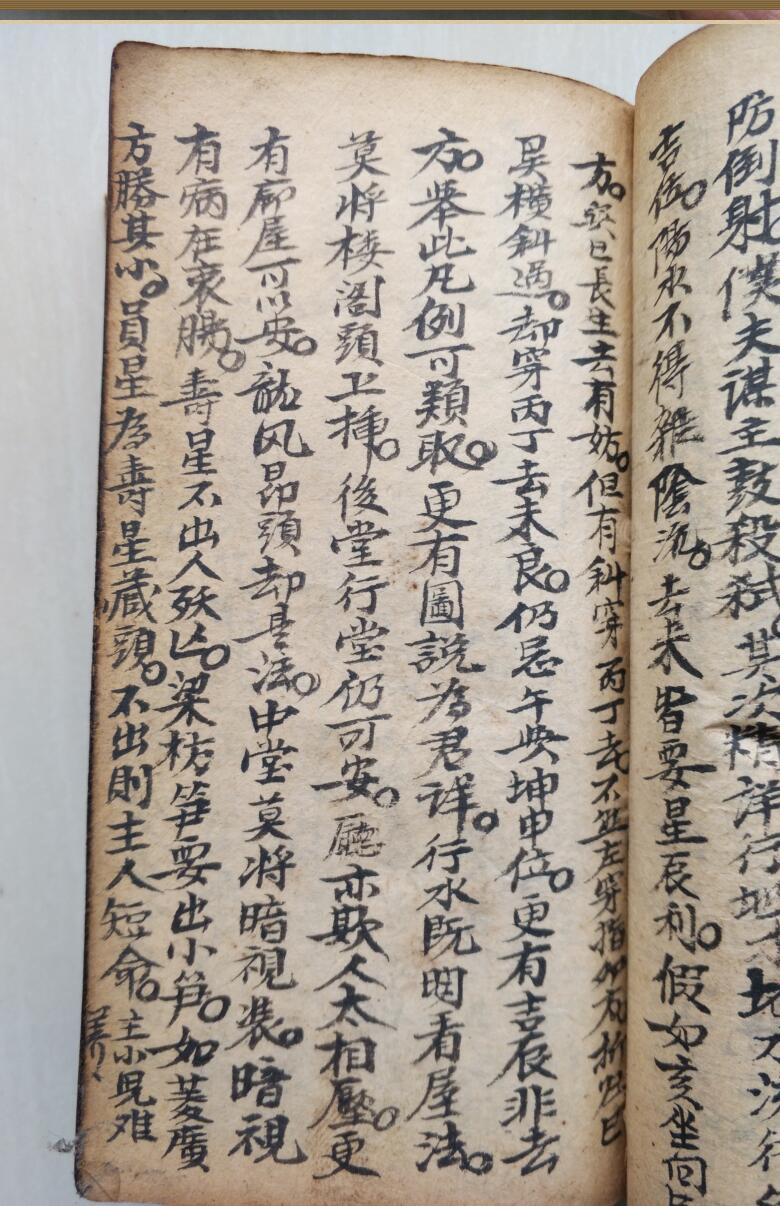 防倒射僕夫謀主敖殺弒莫次精詳行地
吉位陽水不得雜陰流去來皆要星辰利假如亥坐向
方癸巳長生去有妨但有斜穿丙丁去不
異橫斜過却穿丙丁去未良仍忌午與坤申位更有吉辰非去
方舉此凡例可類取更有圖說為君詳行水既明看屋法
莫將楼阁頭上挿後堂行堂仍可安廳亦欺人太相壓更
有廊屋可以安龍风昂頭却是法中堂莫将暗視裝暗視
有病在衷腸壽星不出人殀亾梁枋笋要出小笋如菱廣
方勝其小員星為壽星藏頭不出則主人短命主小児难
养